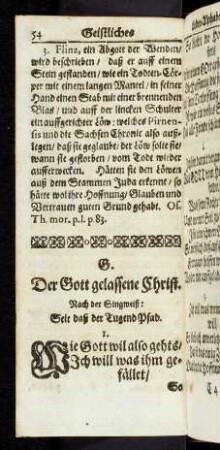 54 Geistliches
3. Flinz, ein Abgott der Wenden/
wird beschrieben/ daß er auff einem
Stein gestanden/ wie ein Todten-Cör-
per mit einem langen Mantel/ in seiner
Hand einen Stab mit einer brennenden
Blas/ und auff der lincken Schulter
ein auffgerichter Löw: welches Pirnen-
sis und die Sachsen Chronic also auß-
legen/ daß sie geglaubt/ der Löw solte sie/
wann sie gestorben/ vom Tode wieder
aufferwecken. Hätten sie den Löwen
auß dem Stammen Juda erkennt/ so
hätte wol ihre Hoffnung/ Glauben und
Vertrauen guten Grund gehabt. Os.
Th. mor. p. l. p. 83.
G.
Der Gott gelassene Christ.
Nach der Singweiß:
Seit daß der Tugend Pfad.
1.
Wie Gott wil also gehts/
Ich will was ihm ge-
fället/
So